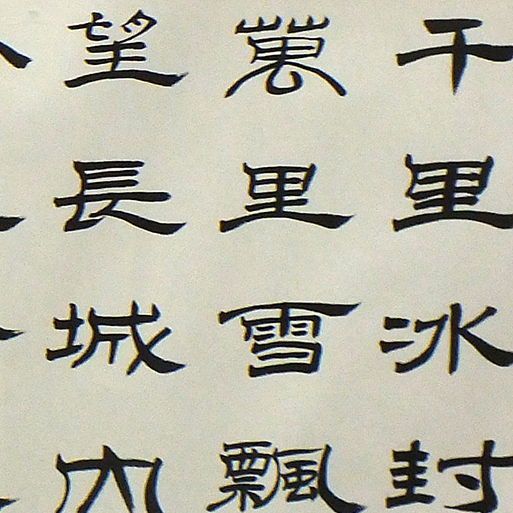 千里冰封
萬里雪飄
望長城内